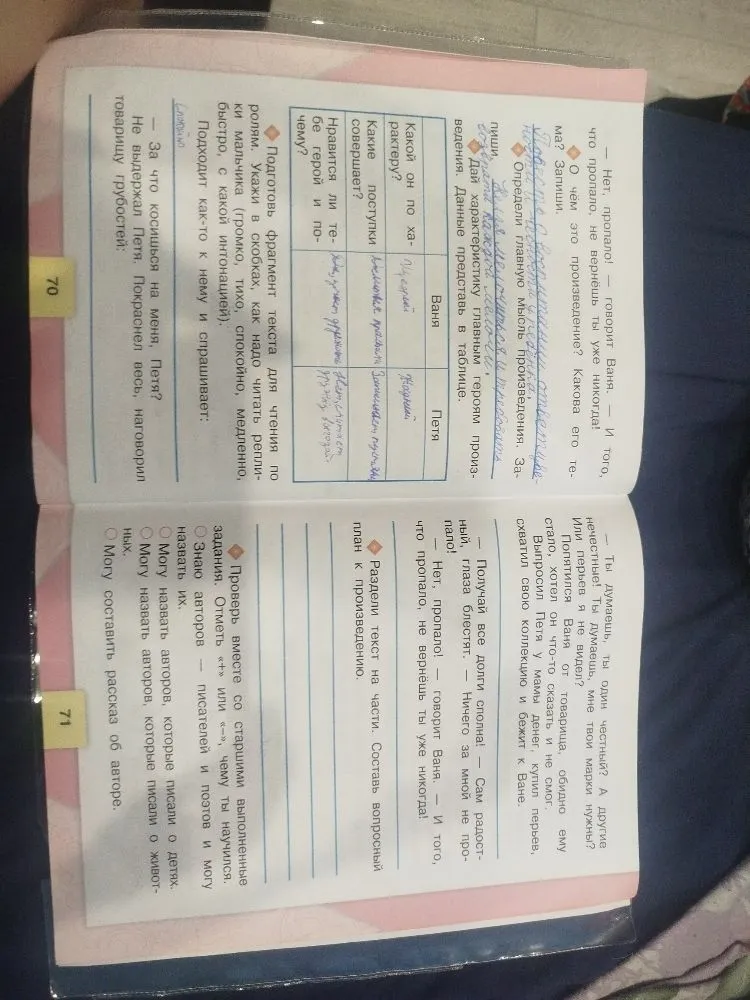 — Нет, пропало! — говорит Ваня. — И того,
что пропало, не вернёшь ты уже никогда!
О чём это произведение? Какова его те-
ма? Запиши.
Определи главную мысль произведения. За-
пиши.
каждой мелочи.
Дай характеристику главным героям произ-
ведения. Данные представь в таблице.
Ваня
Петя
Какой он по ха-
рактеру?
Щедрый
Жадный
Какие поступки
совершает?
Нравится ли те-
бе герой и по-
чему?
Подготовь фрагмент текста для чтения по
ролям. Укажи в скобках, как надо читать репли-
ки мальчика (громко, тихо, спокойно, медленно,
быстро, с какой интонацией).
Подходит как-то к нему и спрашивает:
спокойно
— За что косишься на меня, Петя?
Не выдержал Петя. Покраснел весь, наговорил
товарищу грубостей:
70
— Ты думаешь, ты один честный? А другие
нечестные! Ты думаешь, мне твои марки нужны?
Или перьев я не видел?
Попятился Ваня от товарища, обидно ему
стало, хотел он что-то сказать и не смог.
Выпросил Петя у мамы денег, купил перьев,
схватил свою коллекцию и бежит к Ване.
— Получай все долги сполна! — Сам радост-
ный, глаза блестят. — Ничего за мной не про-
пало!
— Нет, пропало! — говорит Ваня. — И того,
что пропало, не вернёшь ты уже никогда!
Раздели текст на части. Составь вопросный
план к произведению.
Проверь вместе со старшими выполненные
задания. Отметь «+» или «–», чему ты научился.
Знаю авторов — писателей и поэтов и могу
назвать их.
Могу назвать авторов, которые писали о детях.
Могу назвать авторов, которые писали о живот-
ных.
Могу составить рассказ об авторе.
71